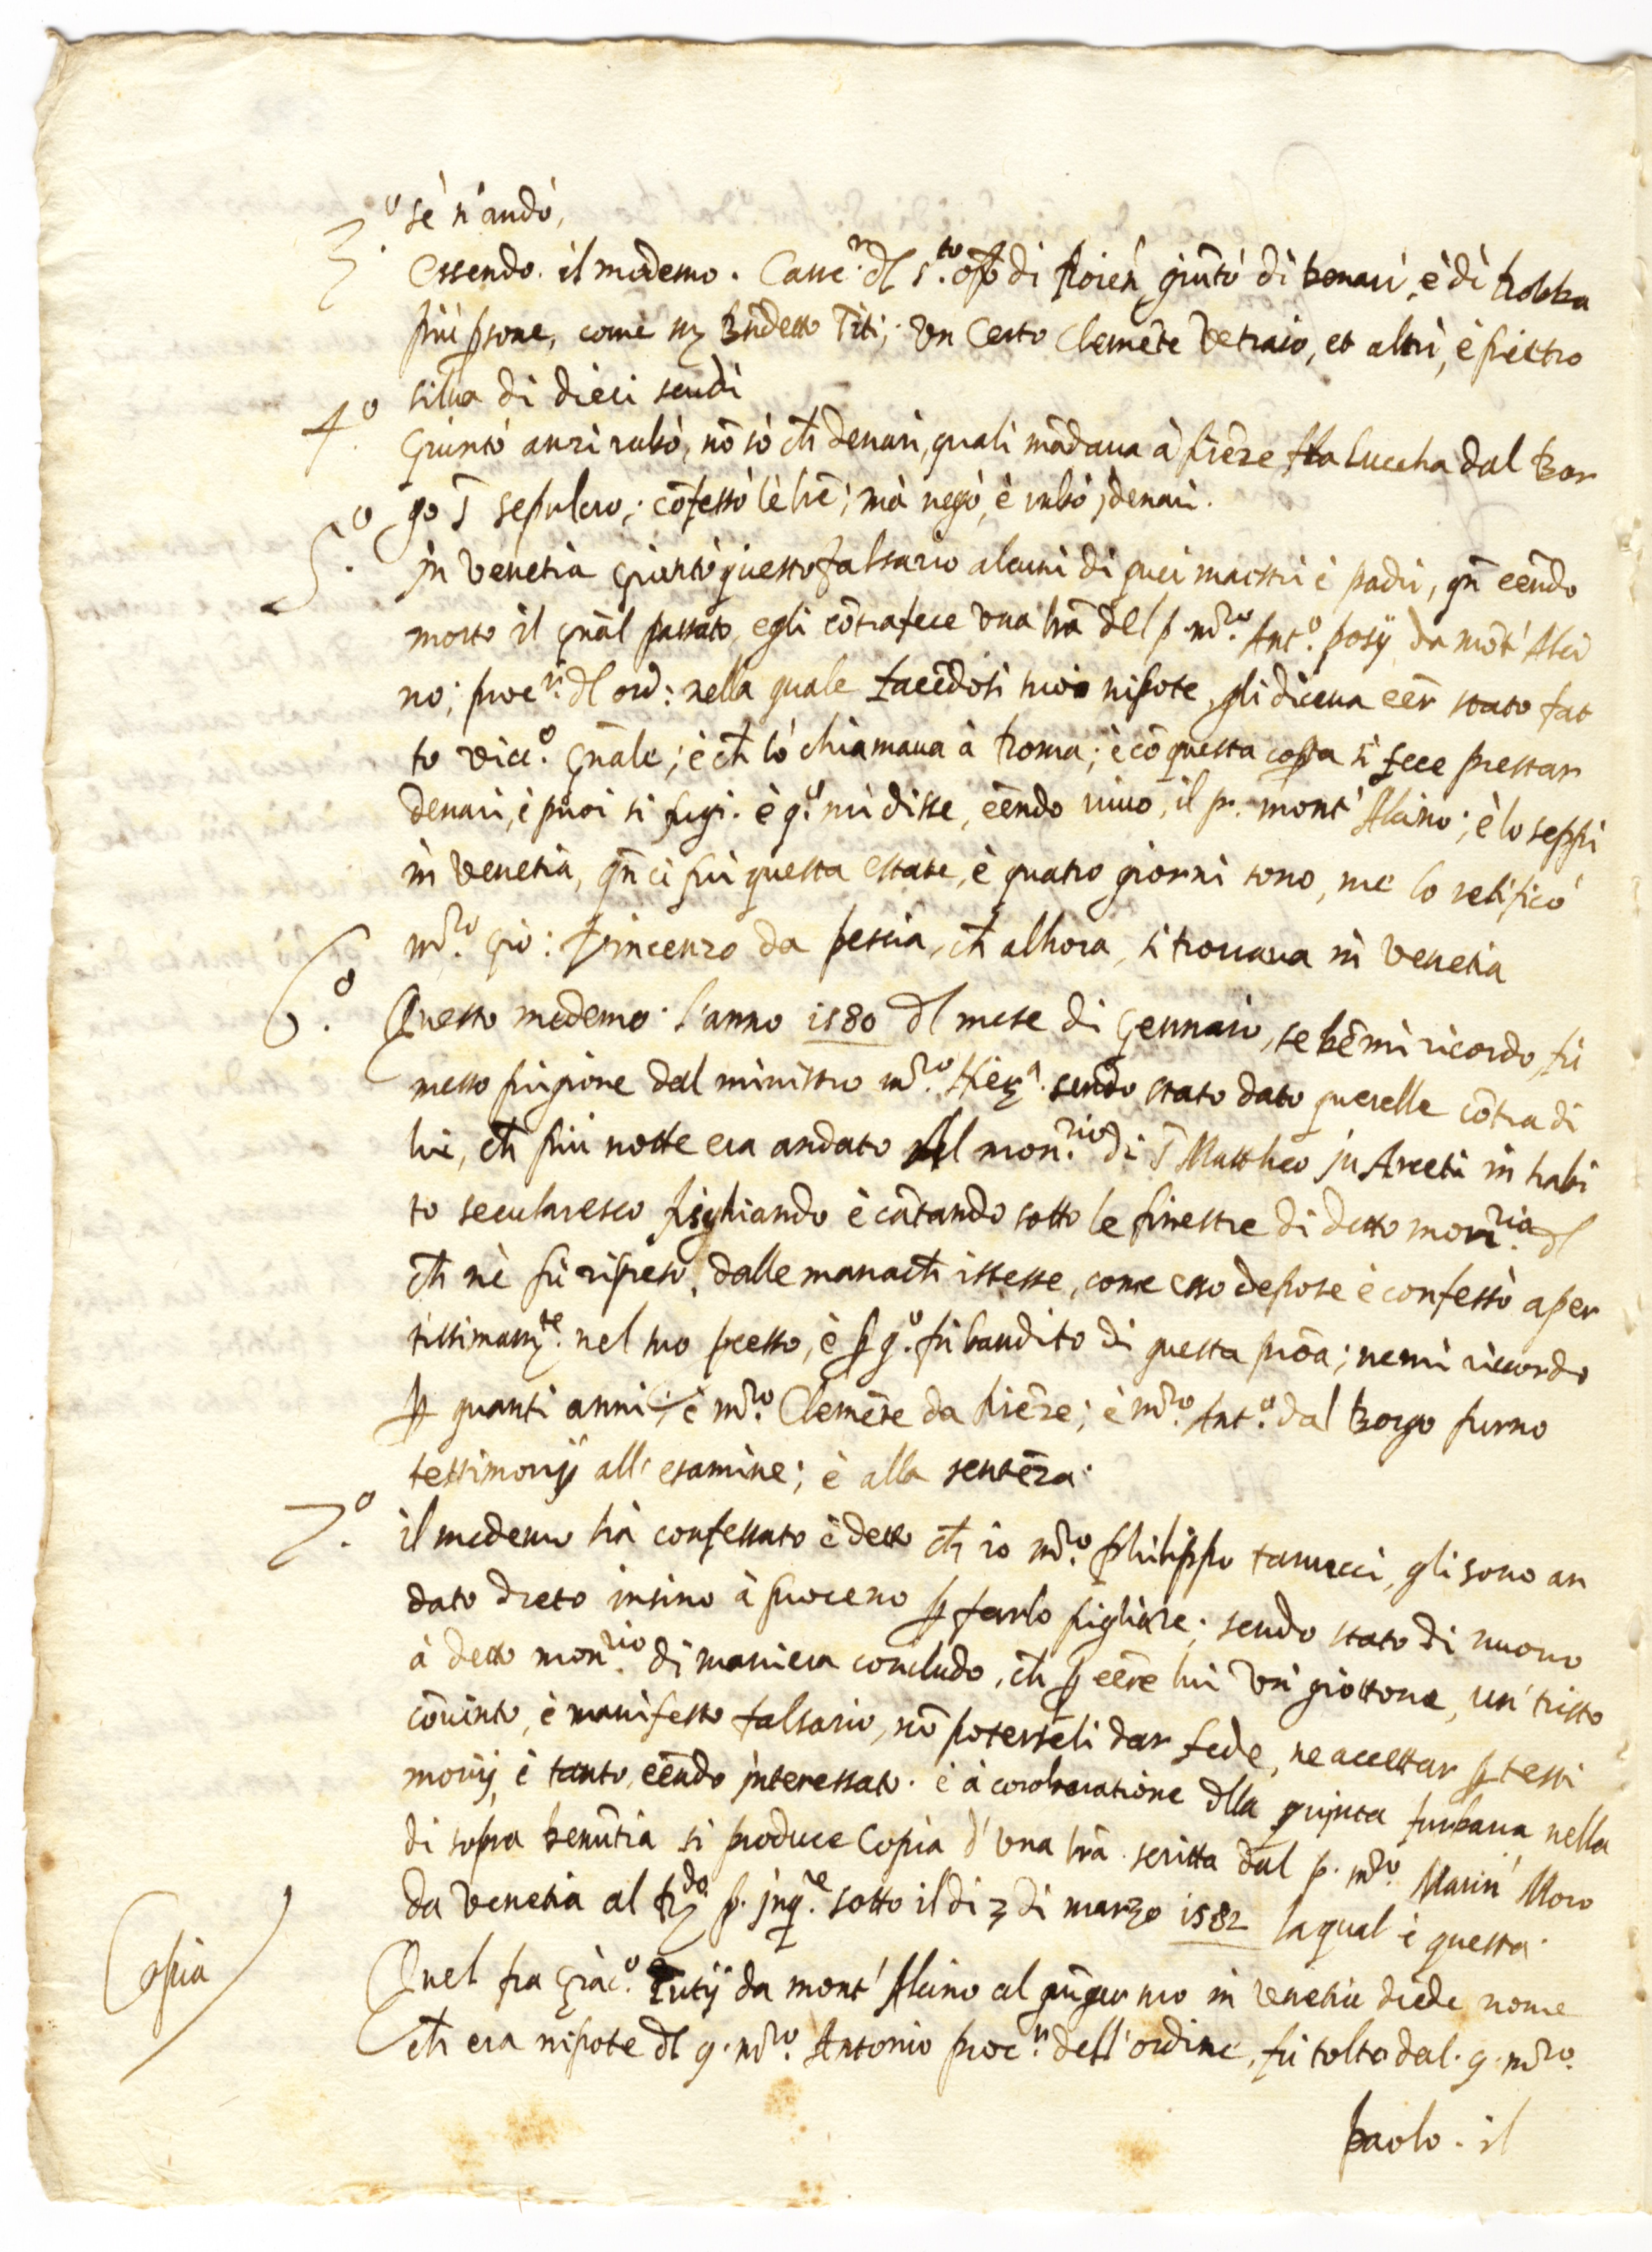 sè n'andò,
3.º Essendo il medemo. Canc.re dl s.to offº di fioreñ, giuntò di denari, è di robba
più psone, come Bndetto Titi; Un Certo Clemẽte Vetraio, et altri, è pietro
silua di dieci scudi
4.º Giuntò anzi rubò, nõ sò ch̃ denari, quali mãdaua à firẽze Lucha dal Bor
go S̃ sepulcro; cõfessò lè lrẽ; mà negò, è rubò j denari.
5.º jn Venetia giuntò questo falsario alcuni di quei maestri è padri, qñ eẽndo
morto il gñal passato, egli cõtrafece una lrã del p. mro. Ant.º posij da mõt' Alci
no; proc.r dl ord: nella quale facẽdosi suo nipote, gli diceua eẽr stato fat
to vic.º gñale; è ch̃ lò chiamaua à Roma; è cõ questa cossa si fece prestar
denari, è puoi si fugi. è q.º mi disse, eẽndo uiuo, il p. mont' Alcino; è lo seppi
in Venetia, qñ ci fui questa estate, è quatro giorni sono, me lo retificò
mro. Giò: Vincenzo da Pescia, ch̃ alhora, si trouaua in Venetia
6.º Questo medemo. l'anno 1580 dl mese di Gennaio, se bẽ mi ricordo, fù
messo prigione dal ministro mro. Hier.º sendo stato dato querelle cõtra di
lui, ch̃ più notte era andato Al mon.rio di S̃ Mattheo jn Arcetri in habi
to secularesco fisghiando è cãtando sotto le finestre di detto mon.rio dl
ch̃ nè fù ripreso, dalle monach̃ istesse, come esso depose è confessò aper
tissimam.te nel suo pcesso, è p q.º fù bandito di questa proã; ne mi riccordo
p quanti anni; è mro. Clemẽte da firẽze; è mro. Ant.º dal Borgo furno
testimonij all' esamine; è alla sentẽza.
7.º il medemo hà confessato è detto ch̃ io mro. Philippo tanucci, gli sono an
dato dreto insino à proceno p farlo pigliare; sendo stato di nuouo
à detto mon.rio di maniera concludo, ch̃ p eẽre lui Un giottone, un' tristo
cõuinto, è manifesto falsario, nõ poterseli dar fede, ne accettar p testi
monij, è tanto, eẽndo jnteressato. è à corobaratione dlla qujnta furbaria, nella
di sopra denũtia si produce Copia d' una lrã scritta dal p. mro. Marin' Moro
da Venetia al R.do p. jnq.re sotto il di 3 di marzo 1582 la qual è questa.
Copia Quel fra Giac.º Tutij da mont' Alcino al giugner suo in Venetia diede nome
ch̃ era nipote dl q. mro. Antonio proc.r dell' ordine, fù tolto dal. q. mro.
Paolo. il